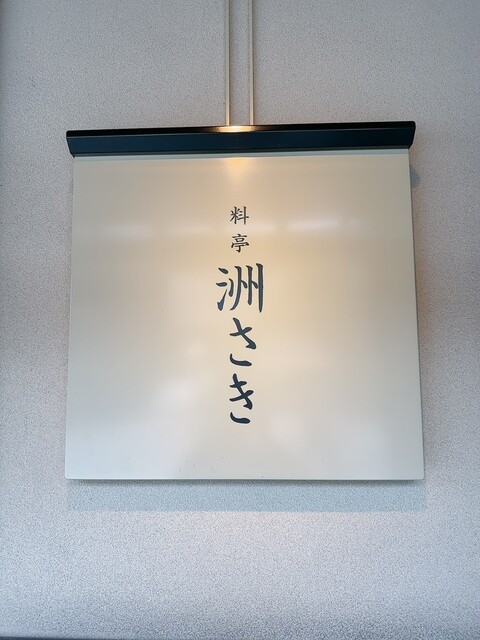 料亭
洲さき